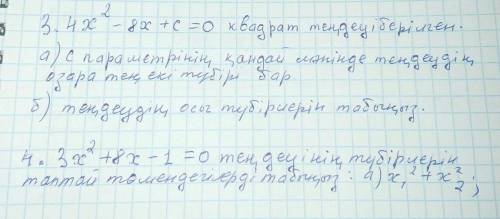 3. 4x² - 8x + c = 0 квадрат теңдеуі берілген.
а) с параметрінің қандай мәнінде теңдеудің
өзара тең екі түбірі бар
б) теңдеудің осы түбірлерін табыңыз.
4. 3x² + 8x - 1 = 0 теңдеуінің түбірлерін
таппай төмендегілерді табыңыз: а) x₁² + x₂² ;